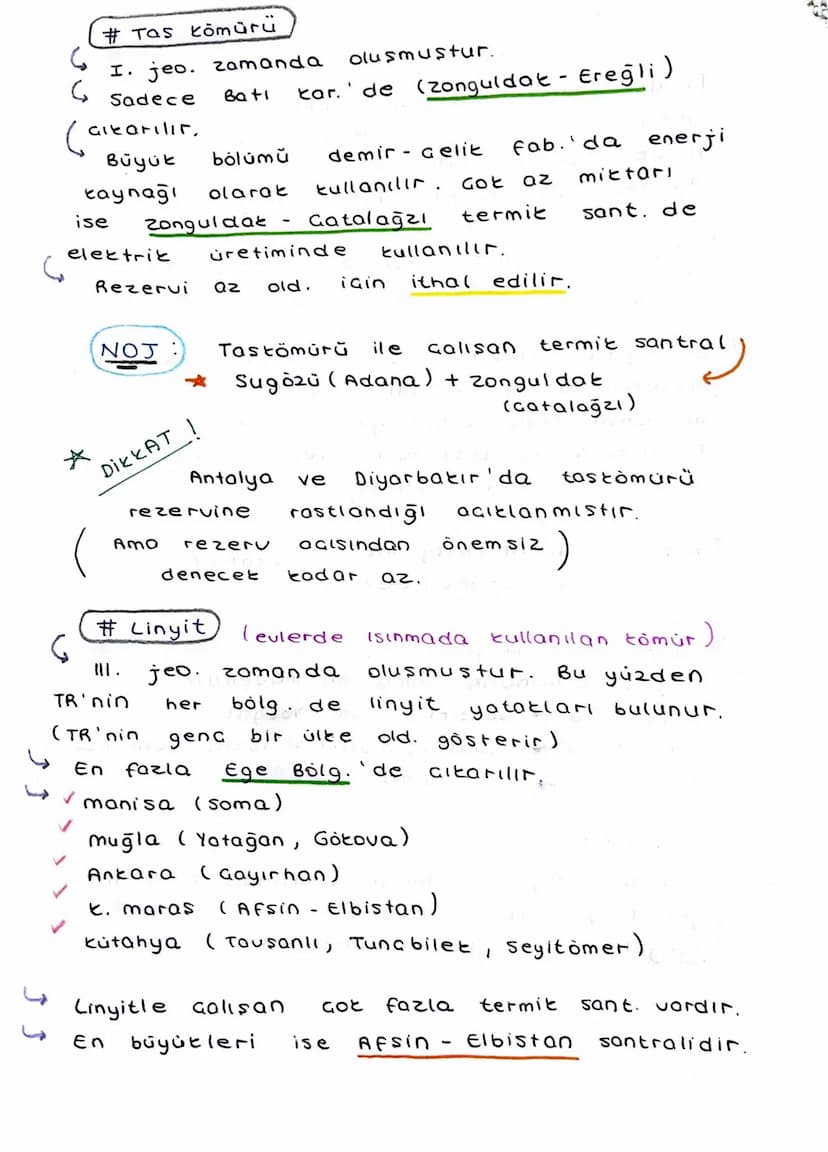 # Taş Kömürü
I. jeo. zamanda oluşmuştur.
Sadece Batı Kar.'de (Zonguldak - Ereğli)
çıkarılır.
Büyük bölümü demir - çelik fab.'da enerji
kaynağı olarak kullanılır. Çok az miktarı
ise Zonguldak - Çatalağzı termik sant. de
elektrik üretiminde kullanılır.
Rezervi az old. için ithal edilir.
NOT : Taşkömürü ile çalışan termik santral
Sugözü (Adana) + Zonguldak
(Çatalağzı)
DİKKAT !
Antalya ve Diyarbakır'da taşkömürü
rezervine rastlandığı açıklanmıştır.
(Ama rezerv açısından önemsiz)
denecek kadar az.
# Linyit (evlerde ısınmada kullanılan kömür)
III. jeo. zamanda oluşmuştur. Bu yüzden
TR'nin her bölg. de linyit yatakları bulunur.
(TR'nin genç bir ülke old. gösterir)
En fazla Ege Bölg.'de çıkarılır.
manisa (Soma)
muğla (Yatağan, Gökova)
Ankara (Çayırhan)
K. maraş (Afşin - Elbistan)
Kütahya (Tavşanlı, Tunçbilek, Seyitömer)
Linyitle çalışan çok fazla termik sant. vardır.
En büyükleri ise Afşin - Elbistan santralidir.